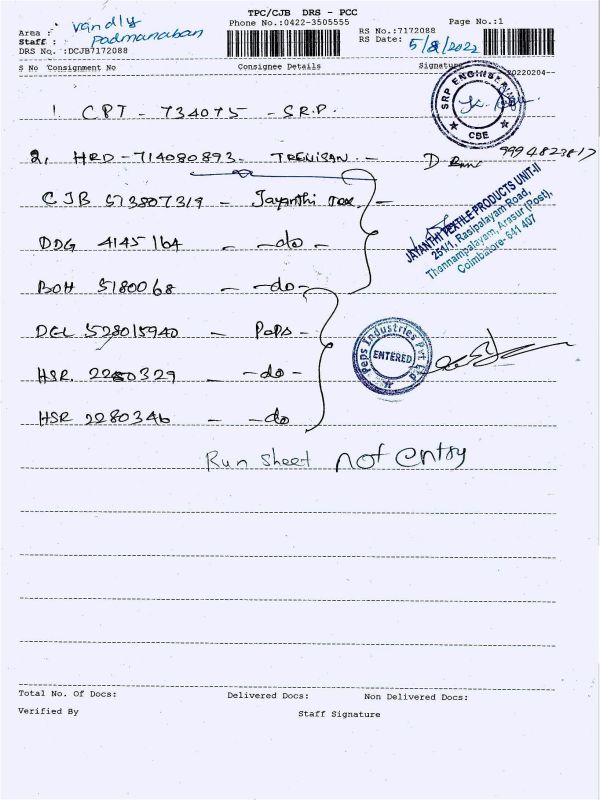 TPC/CJB DRS - PCC
Phone No.:0422-3505555
Page No.:1
Area : vandly
Staff : Padmanaban
DRS No. :DCJB7172088
RS No.:7172088
RS Date: 5/8/2022
S No Consignment No Consignee Details Signature 20220204--
1. CPT - 734075 - S.R.P.
SRP ENGINEERING
CBE
2, HRD - 714080893 - TRENISAN. -
9994823817
CJB 573807319 - Jayanthi Tex -
JAYANTHI TEXTILE PRODUCTS UNIT-II
251/1, Rasipalayam Road,
Thennampalayam, Arasur (Post),
Coimbatore- 641 407
DDG 4145164 - -do -
BOH 5180068 - -do-
DGL 528015940 - Peps -
Peps Industries Pvt Ltd
ENTERED
HSR. 2280329 - -do -
HSR 2280346 - -do
Run Sheet not entry
Total No. Of Docs: Delivered Docs: Non Delivered Docs:
Verified By Staff Signature